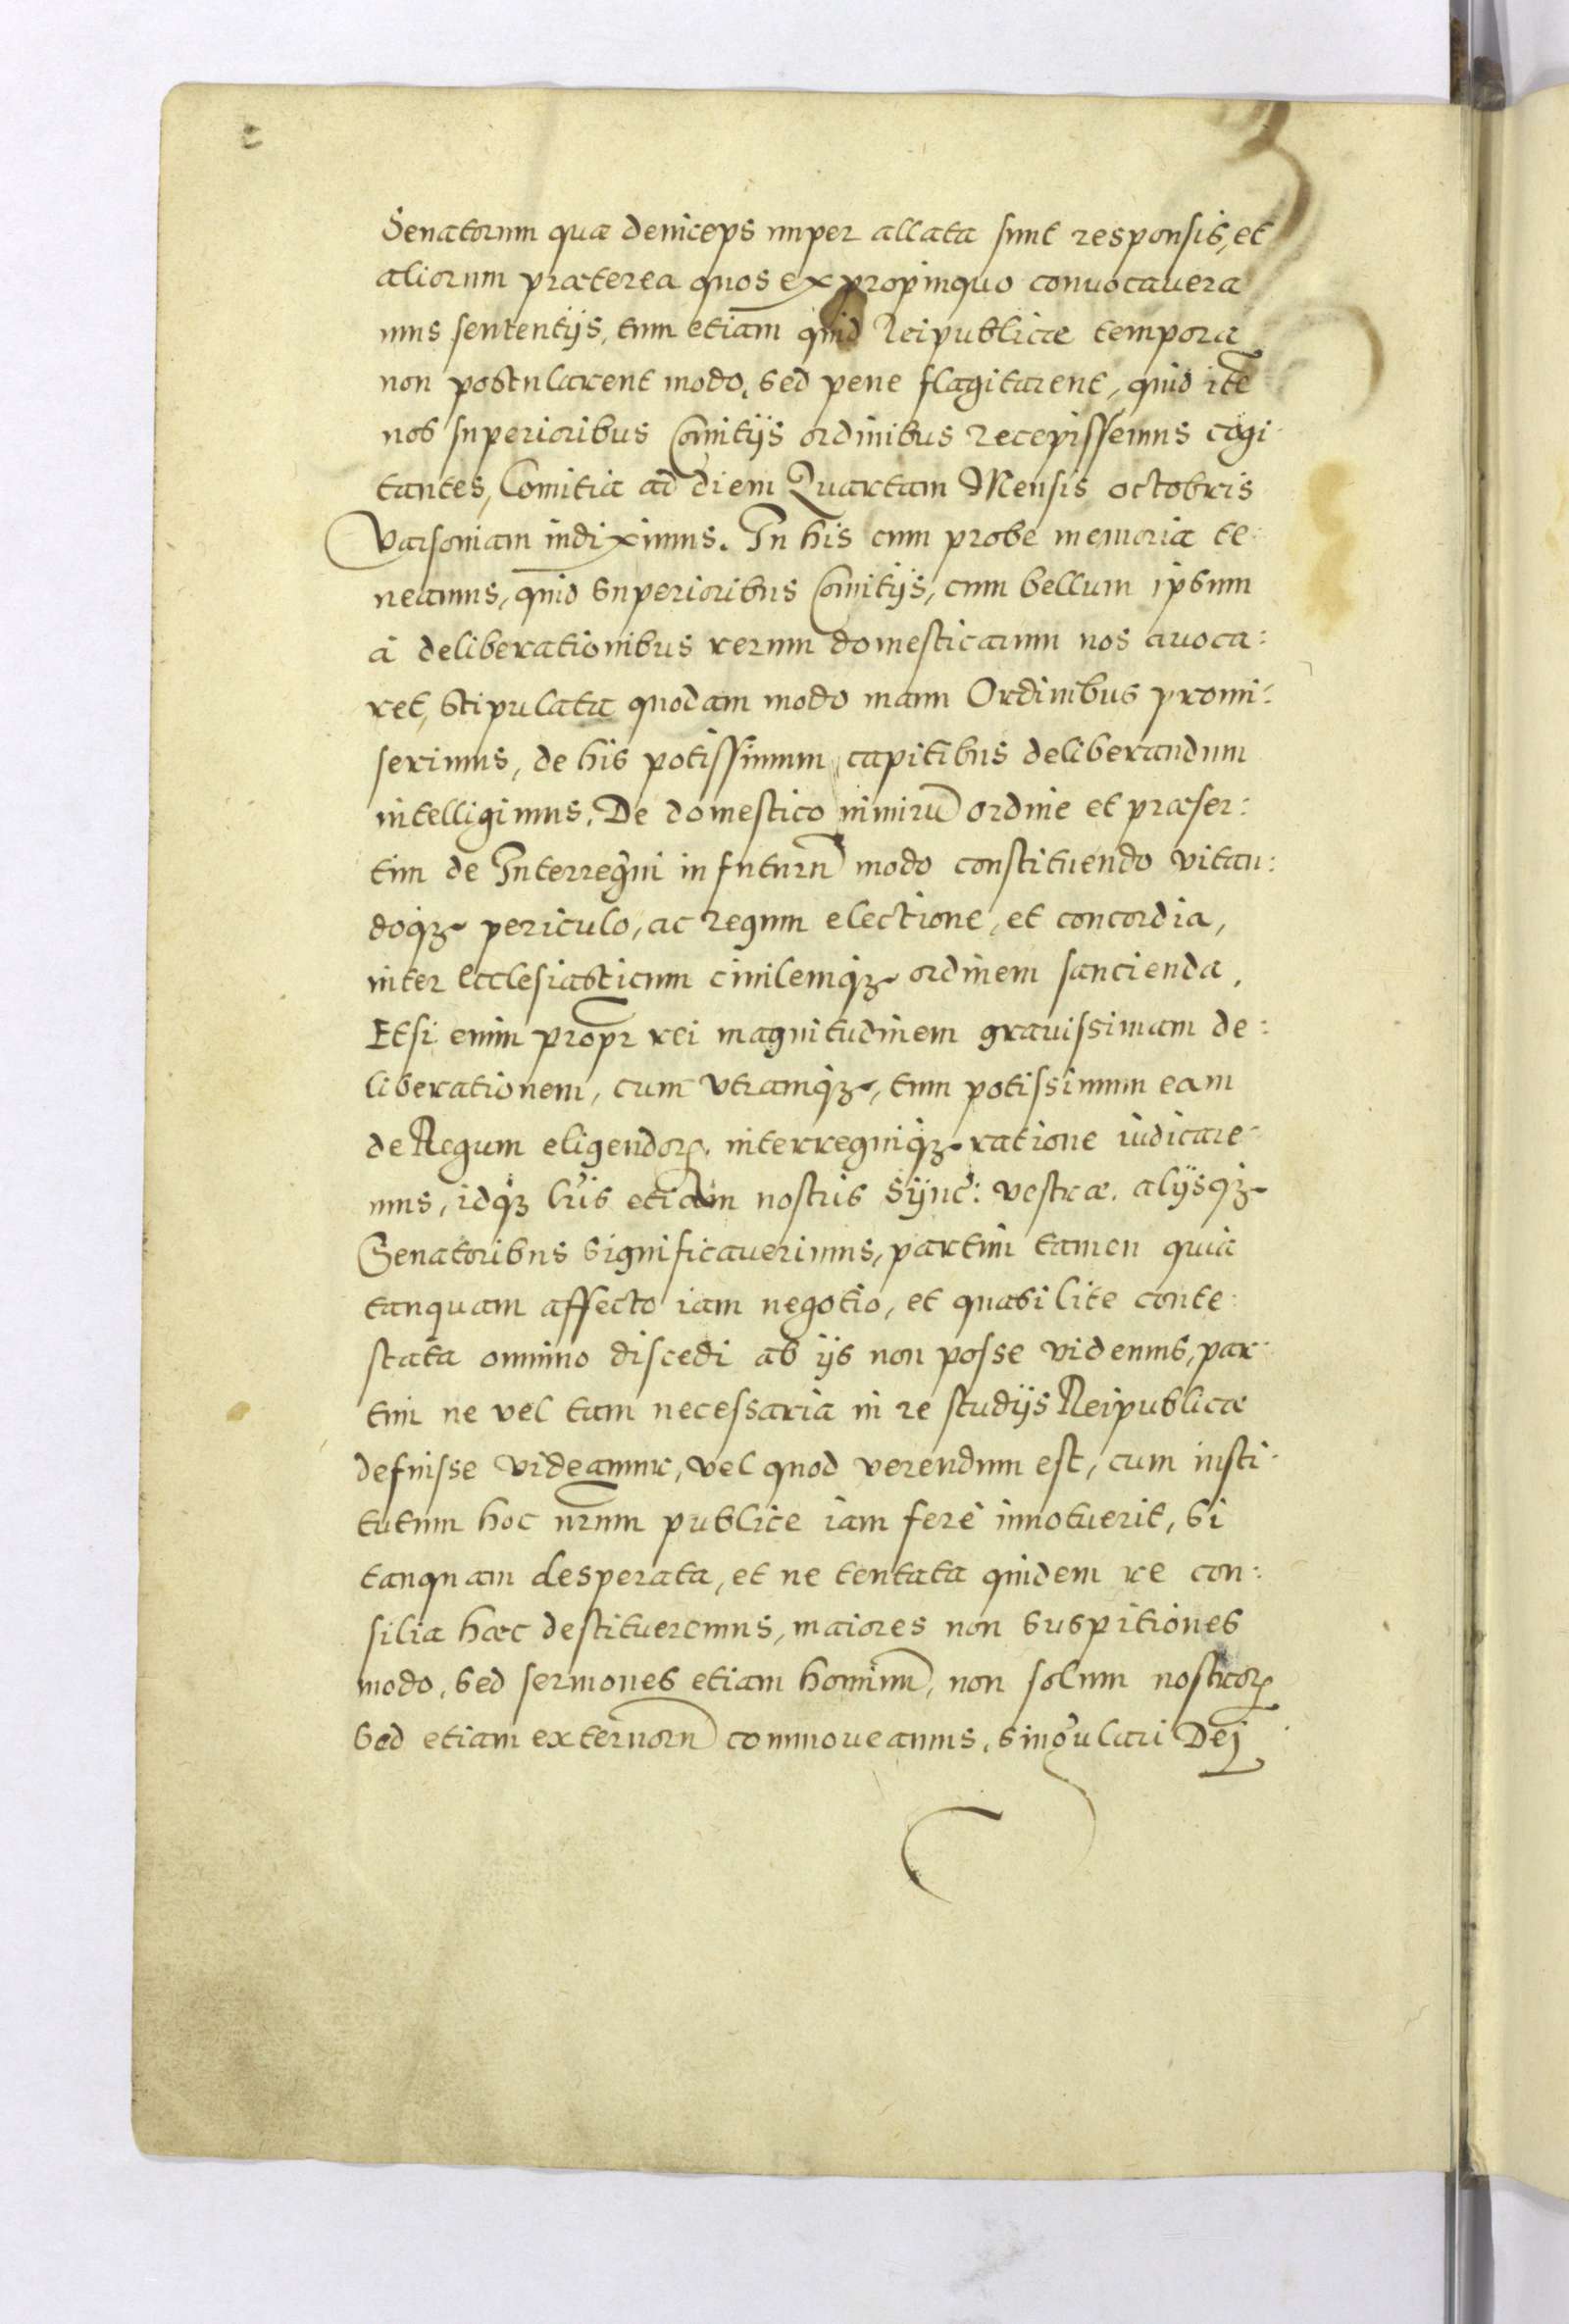 Senatorum quæ deinceps nuper allata sunt responsis, et
aliorum præterea quos ex propinquo convocavera
mus sententijs, tum etiam quid Reipublicæ tempora
non postularent modo, sed pene flagitarent, quid itē
nos superioribus Comitijs ordinibus recepissemus cogi
tantes, Comitia ad diem Quartam Mensis octobris
Varsoviam indiximus. In his cum probe memoria te:
neamus, quid superioribus Comitijs, cum bellum ipsum
à deliberationibus rerum domesticarum nos avoca:
ret, stipulata quodam modo manu Ordinibus promi:
serimus, de his potissimum capitibus deliberandum
intelligimus. De domestico nimirū ordine et præser:
tim de Interregni in futurū modo constituendo vitan:
doqȝ periculo, ac regum electione, et concordia,
inter Ecclesiasticum civilemqȝ ordinem sancienda.
Etsi enim propr̄ rei magnitudinem gravissimam de:
liberationem, cum vtramqȝ, tum potissimum eam
de Regum eligendorꝝ interregniqȝ ratione iudicare:
mus, idqȝ lr̄is etiam nostris Sync: vestræ. alijsqȝ
Senatoribus significaverimus, partim tamen quia
tanquam affecto iam negotio, et quasi lite conte:
stata omnino discedi ab ijs non posse videmus, par:
tim ne vel tam necessaria in re studijs Reipublicæ
defuisse videamur, vel quod verendum est, cum insti:
tutum hoc nr̄um publice iam ferè innotuerit, si
tanquam desperata, et ne tentata quidem re con:
silia hæc destitueremus, maiores non suspitiones
modo, sed sermones etiam hominū, non solum nostrorꝝ
sed etiam externorū commoveamus, singulari Dej